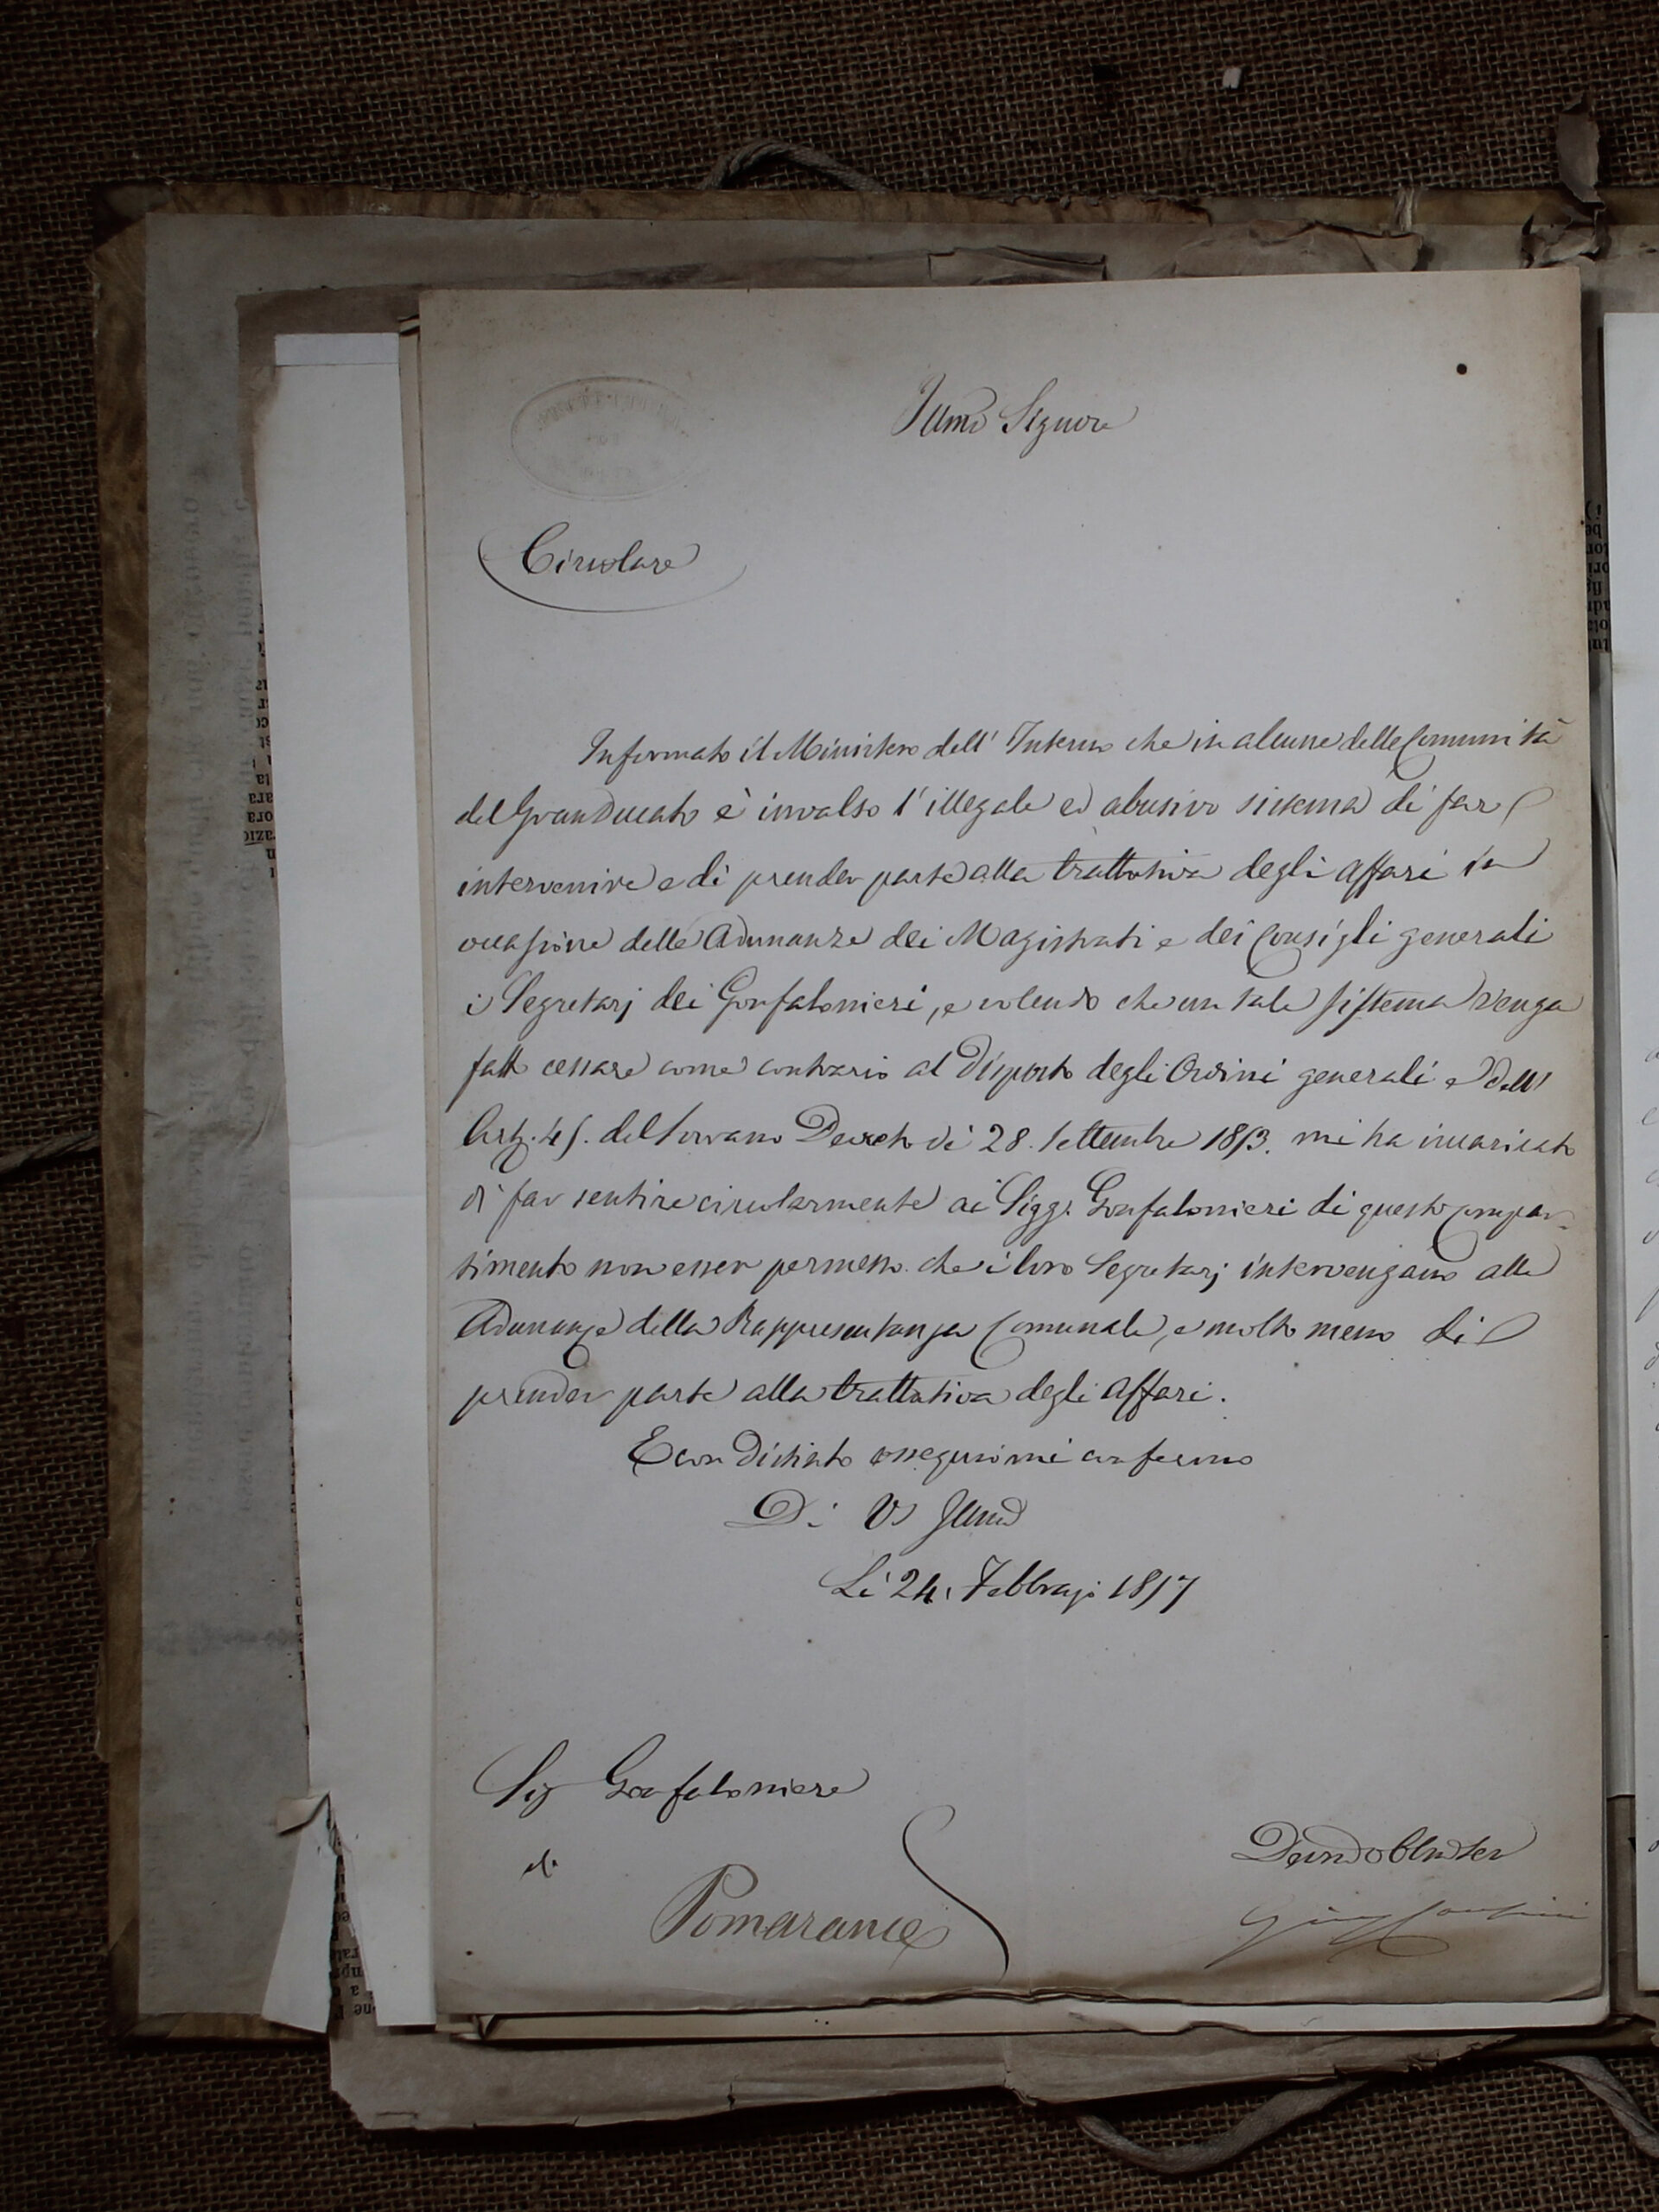 Illmo Signore
Circolare
Informato il Ministero dell' Interno che in alcune delle Comunità
del Granducato è invalso l'illegale ed abusivo sistema di far
intervenire e di prender parte alla trattativa degli affari in
occasione delle Adunanze dei Magistrati e dei Consigli generali
i Segretarj dei Gonfalonieri, e volendo che un tale sistema venga
fatto cessare come contrario al disposto degli Ordini generali e dell'
Art. 45. del Sovrano Decreto de' 28. Settembre 1853. mi ha incaricato
di far sentire circolarmente ai Sigg. Gonfalonieri di questo compar-
timento non esser permesso che i loro Segretarj intervengano alle
Adunanze della Rappresentanza Comunale, e molto meno di
prender parte alla trattativa degli affari.
E con distinto ossequio mi confermo
Di VS Illma
Li 24. Febbrajo 1857
Sig Gonfaloniere
di
Pomarance